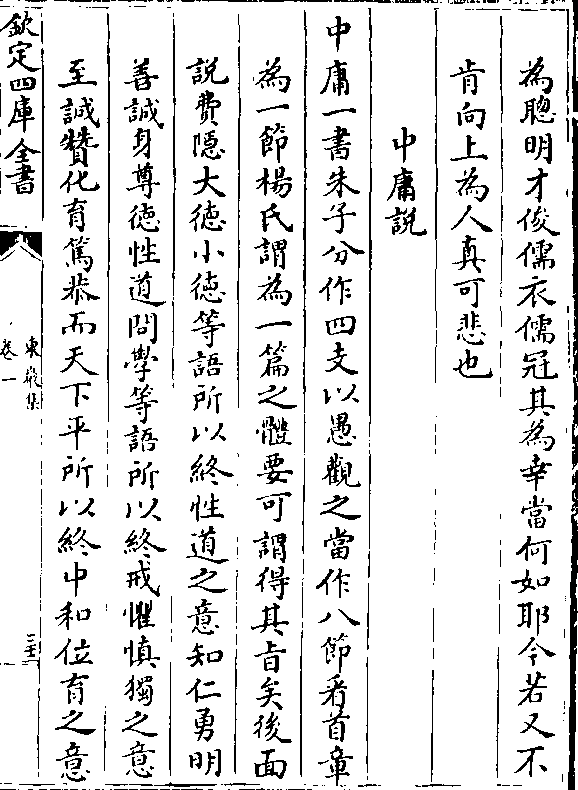 為聰明才俊儒衣儒冠其為幸當何如耶今若又不
肯向上為人真可悲也
中庸說
中庸一書朱子分作四支以愚觀之當作八節看首章
為一節楊氏謂為一篇之體要可謂得其旨矣後面
說費隱大徳小徳等語所以終性道之意知仁勇明
善誠身尊徳性道問學等語所以終戒懼慎獨之意
至誠贊化育篤恭而天下平所以終中和位育之意
欽定四庫全書
東巖集
卷一